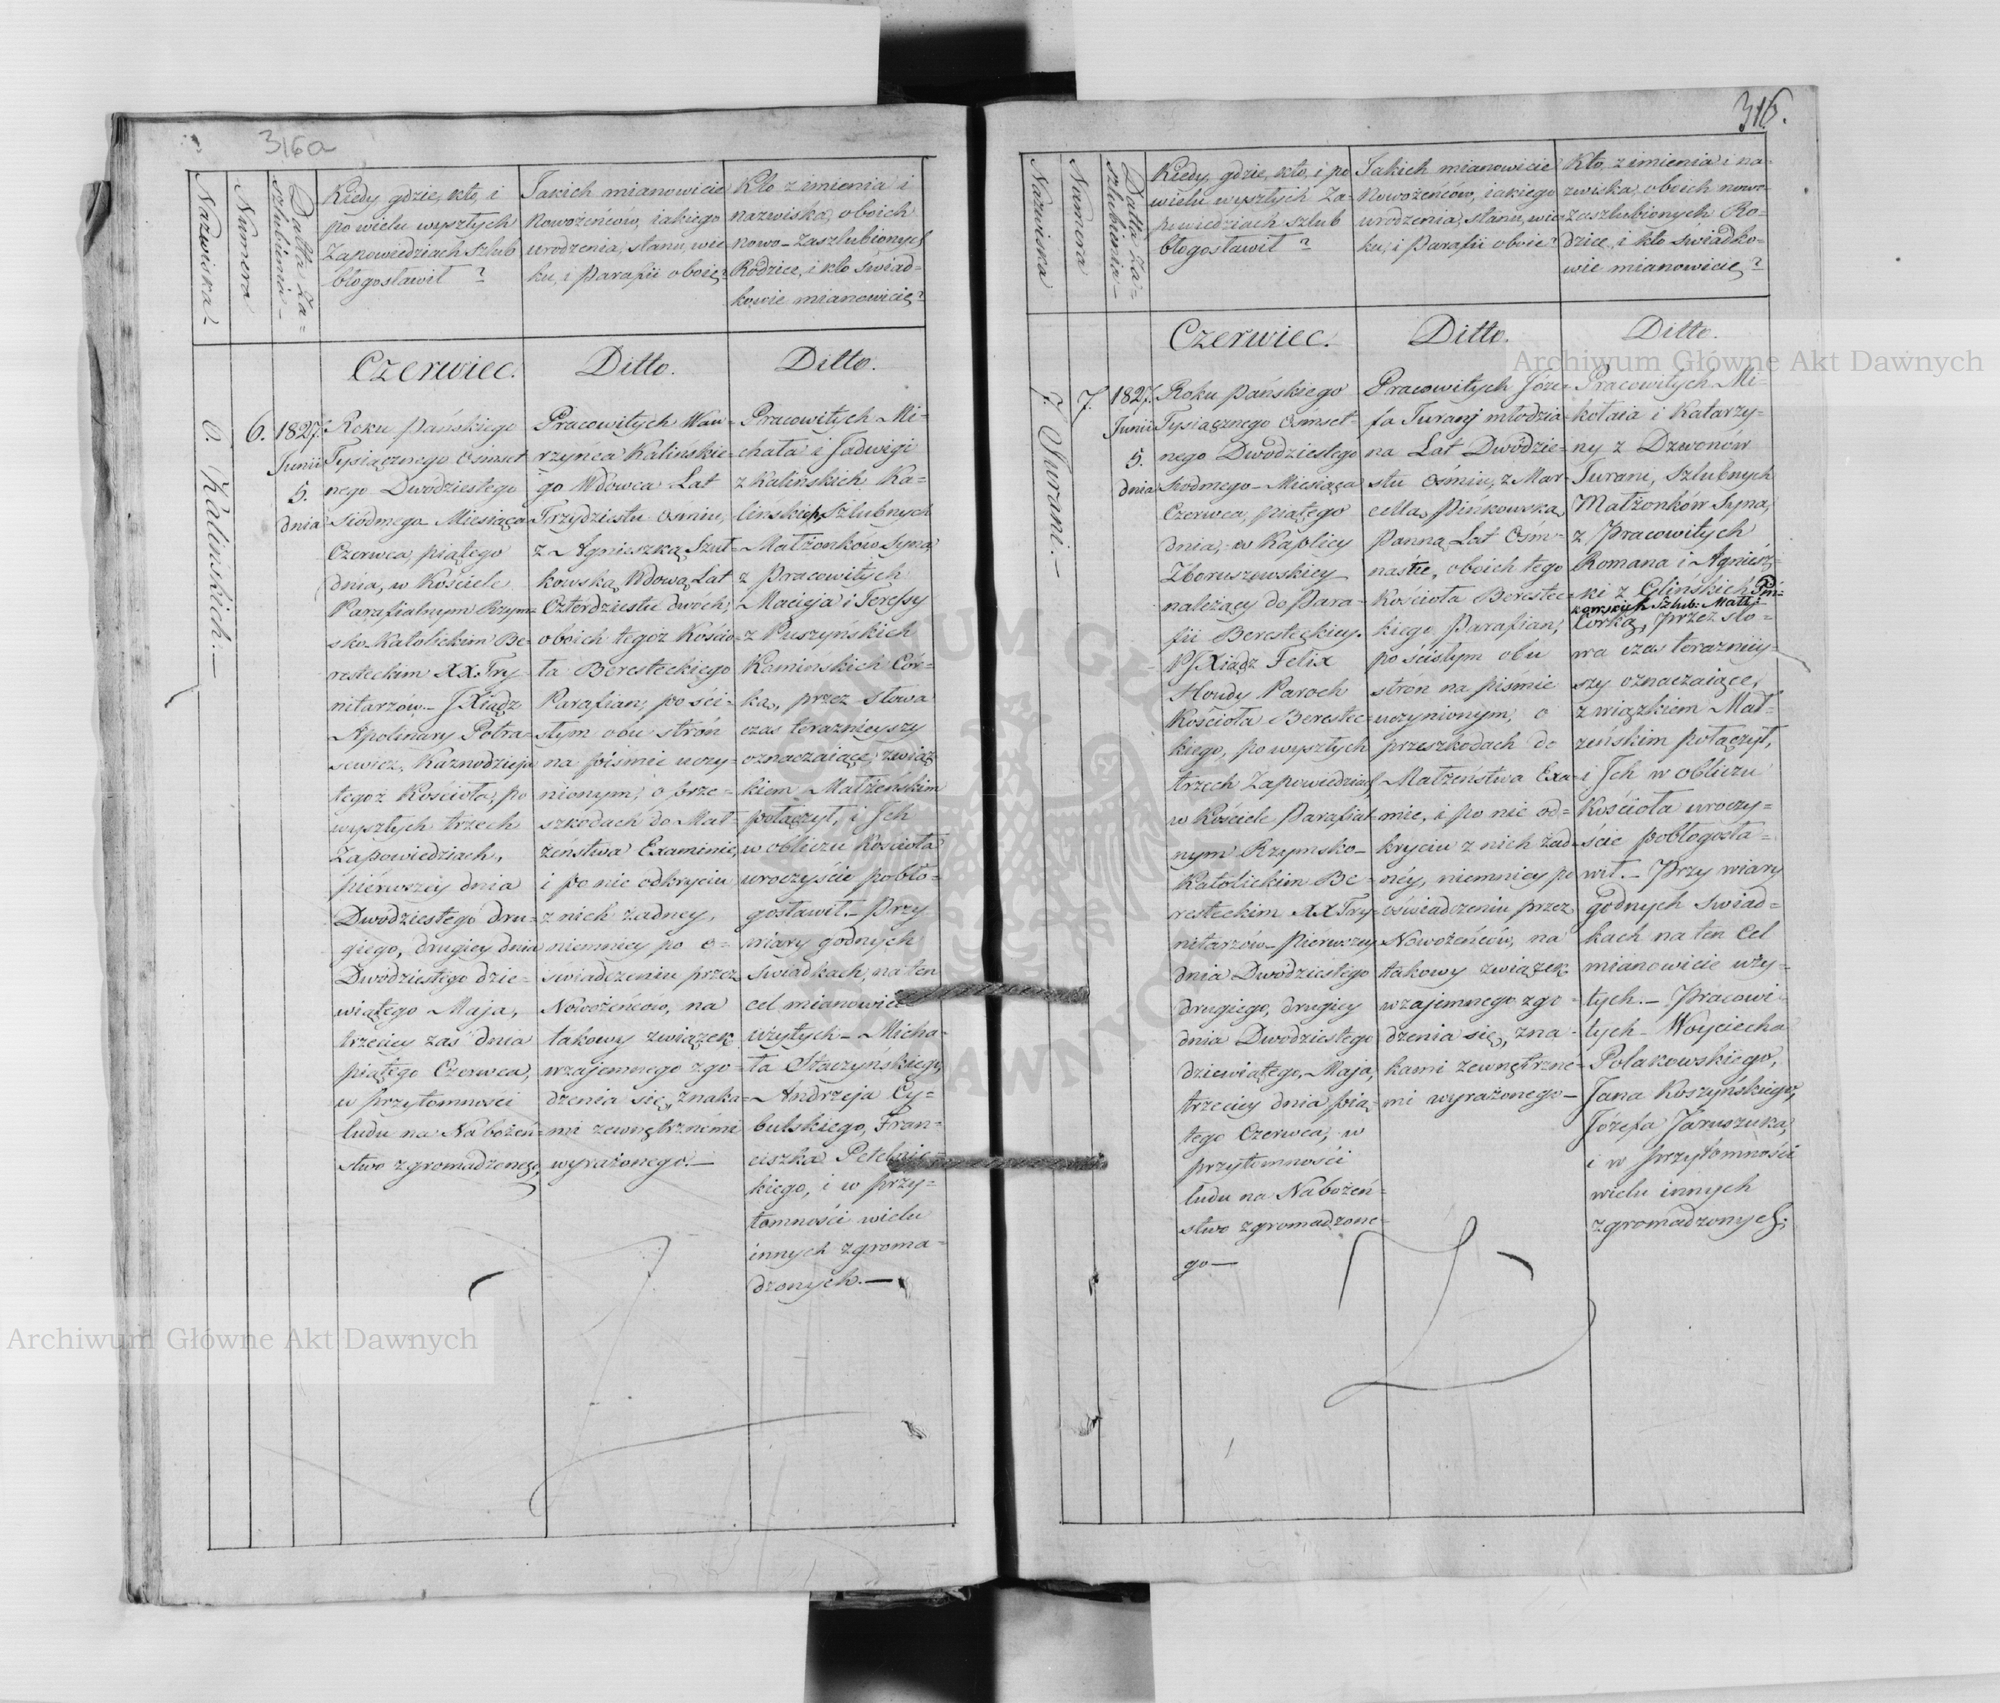 316a
Nazwiska
Numera
Datta za-
szlubienia
Kiedy, gdzie, kto, i
po wielu wyszłych
Zapowiedziach szlub
błogosławił ?
Jakich mianowicie
Nowożeńców, iakiego
urodzenia, stanu, wie
ku, i Parafii oboie?
Kto z imienia i
nazwiska, oboich
nowo-zaszlubionych
Rodzice, i kto świad-
kowie mianowicie?
Czerwiec.
Ditto.
Ditto.
6. Kalińskich.-
6.
1827.
Junii
5.
dnia
Roku Pańskiego
Tysiącznego Ośmset
nego Dwódziestego
Siódmego Miesiąca
Czerwca, piątego
dnia, w Kościele
Parafialnym Rzym=
sko-Katolickim Be-
resteckim XX. Try
nitarzów_ JXiądz
Apolinary Potra-
sewicz, Kaznodzieja
tegoż Kościoła, po
wyszłych trzech
Zapowiedziach,
piérwszéy dnia
Dwódziestego dru-
giego, drugiey dnia
Dwódziestego dzie-
wiątego Maja,
trzeciey zaś dnia
piątego Czerwca,
w przytomności
ludu na Nabożeń-
stwo zgromadzonego,
Pracowitych Waw-
rzyńca Kalińskie-
go Wdowca Lat
Trzydziestu Ośmiu,
z Agnieszką Szut-
kowską Wdową Lat
Czterdziestu dwóch,
oboich tegoż Kościo-
ła Beresteckiego
Parafian, po ści-
słym obu strón
na piśmie uczy-
nionym, o prze-
szkodach do Mał-
żenstwa Examinie,
i po nie odkryciu
z nich żadney,
niemniey po o-
świadczeniu przez
Nowożeńców, na
takowy związek
wzajemnego zgo-
dzenia się, znaka-
mi zewnętrznémi
wyrażonego._
Pracowitych Mi-
chała i Jadwigi
z Kalińskich Ka-
lińskich, Szlubnych
Małżonków Syna,
z Pracowitych
Macieja i Teressy
z Puszyńskich
Kamińskich Cór-
ką, przez słowa
czas teraznieyszy
oznaczaiące, związ
kiem Małżeńskim
połączył, i Ich
w obliczu Kościoła
uroczyście pobło-
gosławił._ Przy
wiary godnych
swiadkach, na ten
cel mianowicie
użytych_ Micha-
ła Staczyńskiego,
Andrzeja Cy-
bulskiego, Fran-
ciszka
kiego, i w przy-
tomności wielu
innych zgroma-
dzonych._
316.
Nazwiska
Numera
Datta za-
szlubienia
Kiedy, gdzie, kto, i po
wielu wyszłych Za-
powiedziach szlub
błogosławił ?
Jakich mianowicie
Nowożeńców, iakiego
urodzenia, stanu, wie
ku, i Parafii oboie?
Kto, z imienia i na-
zwiska, oboich nowo-
zaszlubionych Ro-
dzice, i kto świadko-
wie mianowicie?
Czerwiec.
Ditto.
Ditto.
7. Turani.-
7.
1827.
Junii
5.
dnia
Roku Pańskiego
Tysiącznego Ośmset-
nego Dwódziestego
Siódmego_ Miesiąca
Czerwca, piątego
dnia,- w Kaplicy
Zboruszewskiey
należący do Para-
fii Beresteckiey.
JXiądz Felix
Houdy Paroch
Kościoła Berestec-
kiego, po wyszłych
trzech Zapowiedziach,
w Kościele Parafial-
nym Rzymsko-
Katolickim Be-
resteckim XX Try-
nitarzów_ Piérwszey
dnia Dwódziestego
drugiego, drugiey
dnia Dwódziestego
dziewiątego, Maja,
trzeciey dnia pią
tego Czerwca, w
przytomności
ludu na Nabożeń-
stwo zgromadzone-
go_
Pracowitych Józe-
fa Turanj młodzia
na Lat Dwódzie-
stu Ośmiu, z Mar
cellą Pińkowską
Panną Lat Ośm-
nastu, oboich tego
Kościoła Berestec-
kiego Parafian,
po ścisłym obu
strón na piśmie
uczynionym, o
przeszkodach do
Małżeństwa Exa-
mie, i po nie od-
kryciu z nich żad-
néy, niemniey po
oświadczeniu przez
Nowożeńców, na
takowy związek
wzajemnego zgo-
dzenia się, zna-
kami zewnętrzne-
mi wyrażonego_
Pracowitych Mi-
kołaia i Katarzy-
ny z Dzwonów
Turani, Szlubnych
Małżonków Syna,
z Pracowitych
Romana i Agniesz-
ki z Celińskich Piń-
kowskich Szlub: Małż:
Córką, przez sło-
wa czas teraznióy-
szy oznaczaiące,
związkiem Mał-
żeńskim połączył,
i Ich w obliczu
Kościoła uroczy-
ście pobłogosła-
wił._ Przy wiary
godnych Swiad-
kach na ten Cel
mianowicie uży-
tych._ Pracowi-
tych_ Woyciecha
Polakowskiego,
Jana Koszyńskiego,
Józefa Jaruszuka,
i w przytomności
wielu innych
zgromadzonych.
Archiwum Główne Akt Dawnych
Archiwum Główne Akt Dawnych